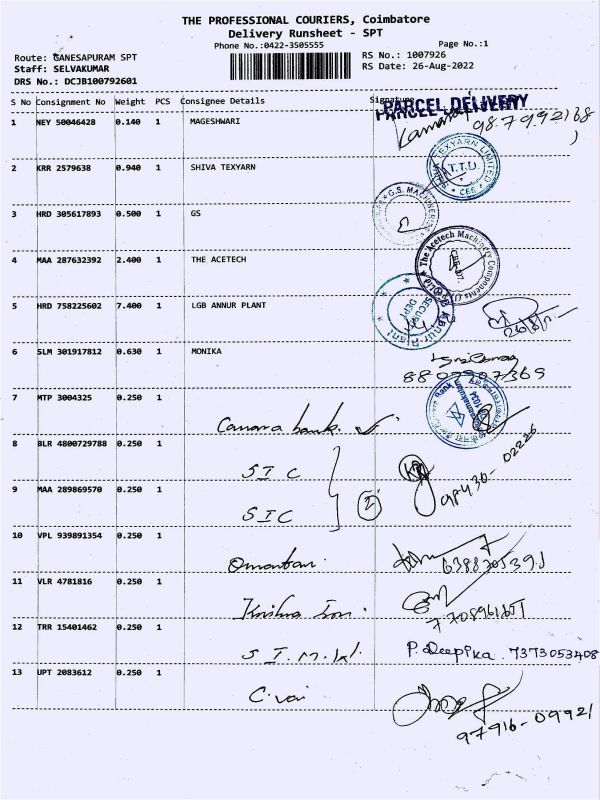 THE PROFESSIONAL COURIERS, Coimbatore
Delivery Runsheet - SPT
Phone No.:0422-3505555
Page No.:1
Route: GANESAPURAM SPT
RS No.: 1007926
Staff: SELVAKUMAR
RS Date: 26-Aug-2022
DRS No.: DCJB100792601
S No Consignment No Weight PCS Consignee Details Signature
PARCEL DELIVERY
1 NEY 50046428 0.140 1 MAGESHWARI
2 KRR 2579638 0.940 1 SHIVA TEXYARN
TEXYARN LIMITED
A.T.T.D.
CBE
3 HRD 305617893 0.500 1 GS
G.S. MACHINERIES
4 MAA 287632392 2.400 1 THE ACETECH
The Acetech Machinery Components
5 HRD 758225602 7.400 1 LGB ANNUR PLANT
SECURITY DEPT
Annur Plant
6 SLM 301917812 0.630 1 MONIKA
7 MTP 3004325 0.250 1
Canara bank.
8 BLR 4800729788 0.250 1
S I C
98430-02226
9 MAA 289869570 0.250 1
S I C
2
10 VPL 939891354 0.250 1
11 VLR 4781816 0.250 1
Krishna Iron.
12 TRR 15401462 0.250 1
S. I. M. W.
P. Deepika. 7373053408
13 UPT 2083612 0.250 1
C. vai
97916-09921